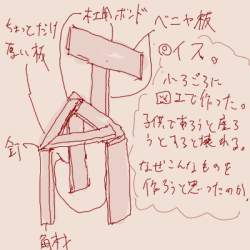 木工用ボンド
ベニヤ板
ちょっとだけ
厚い板
釘
角材
◎イス。
小3ごろに
図工で作った。
子供であろうと座ろ
うとすると壊れる。
なぜこんなものを
作ろうと思ったのか。